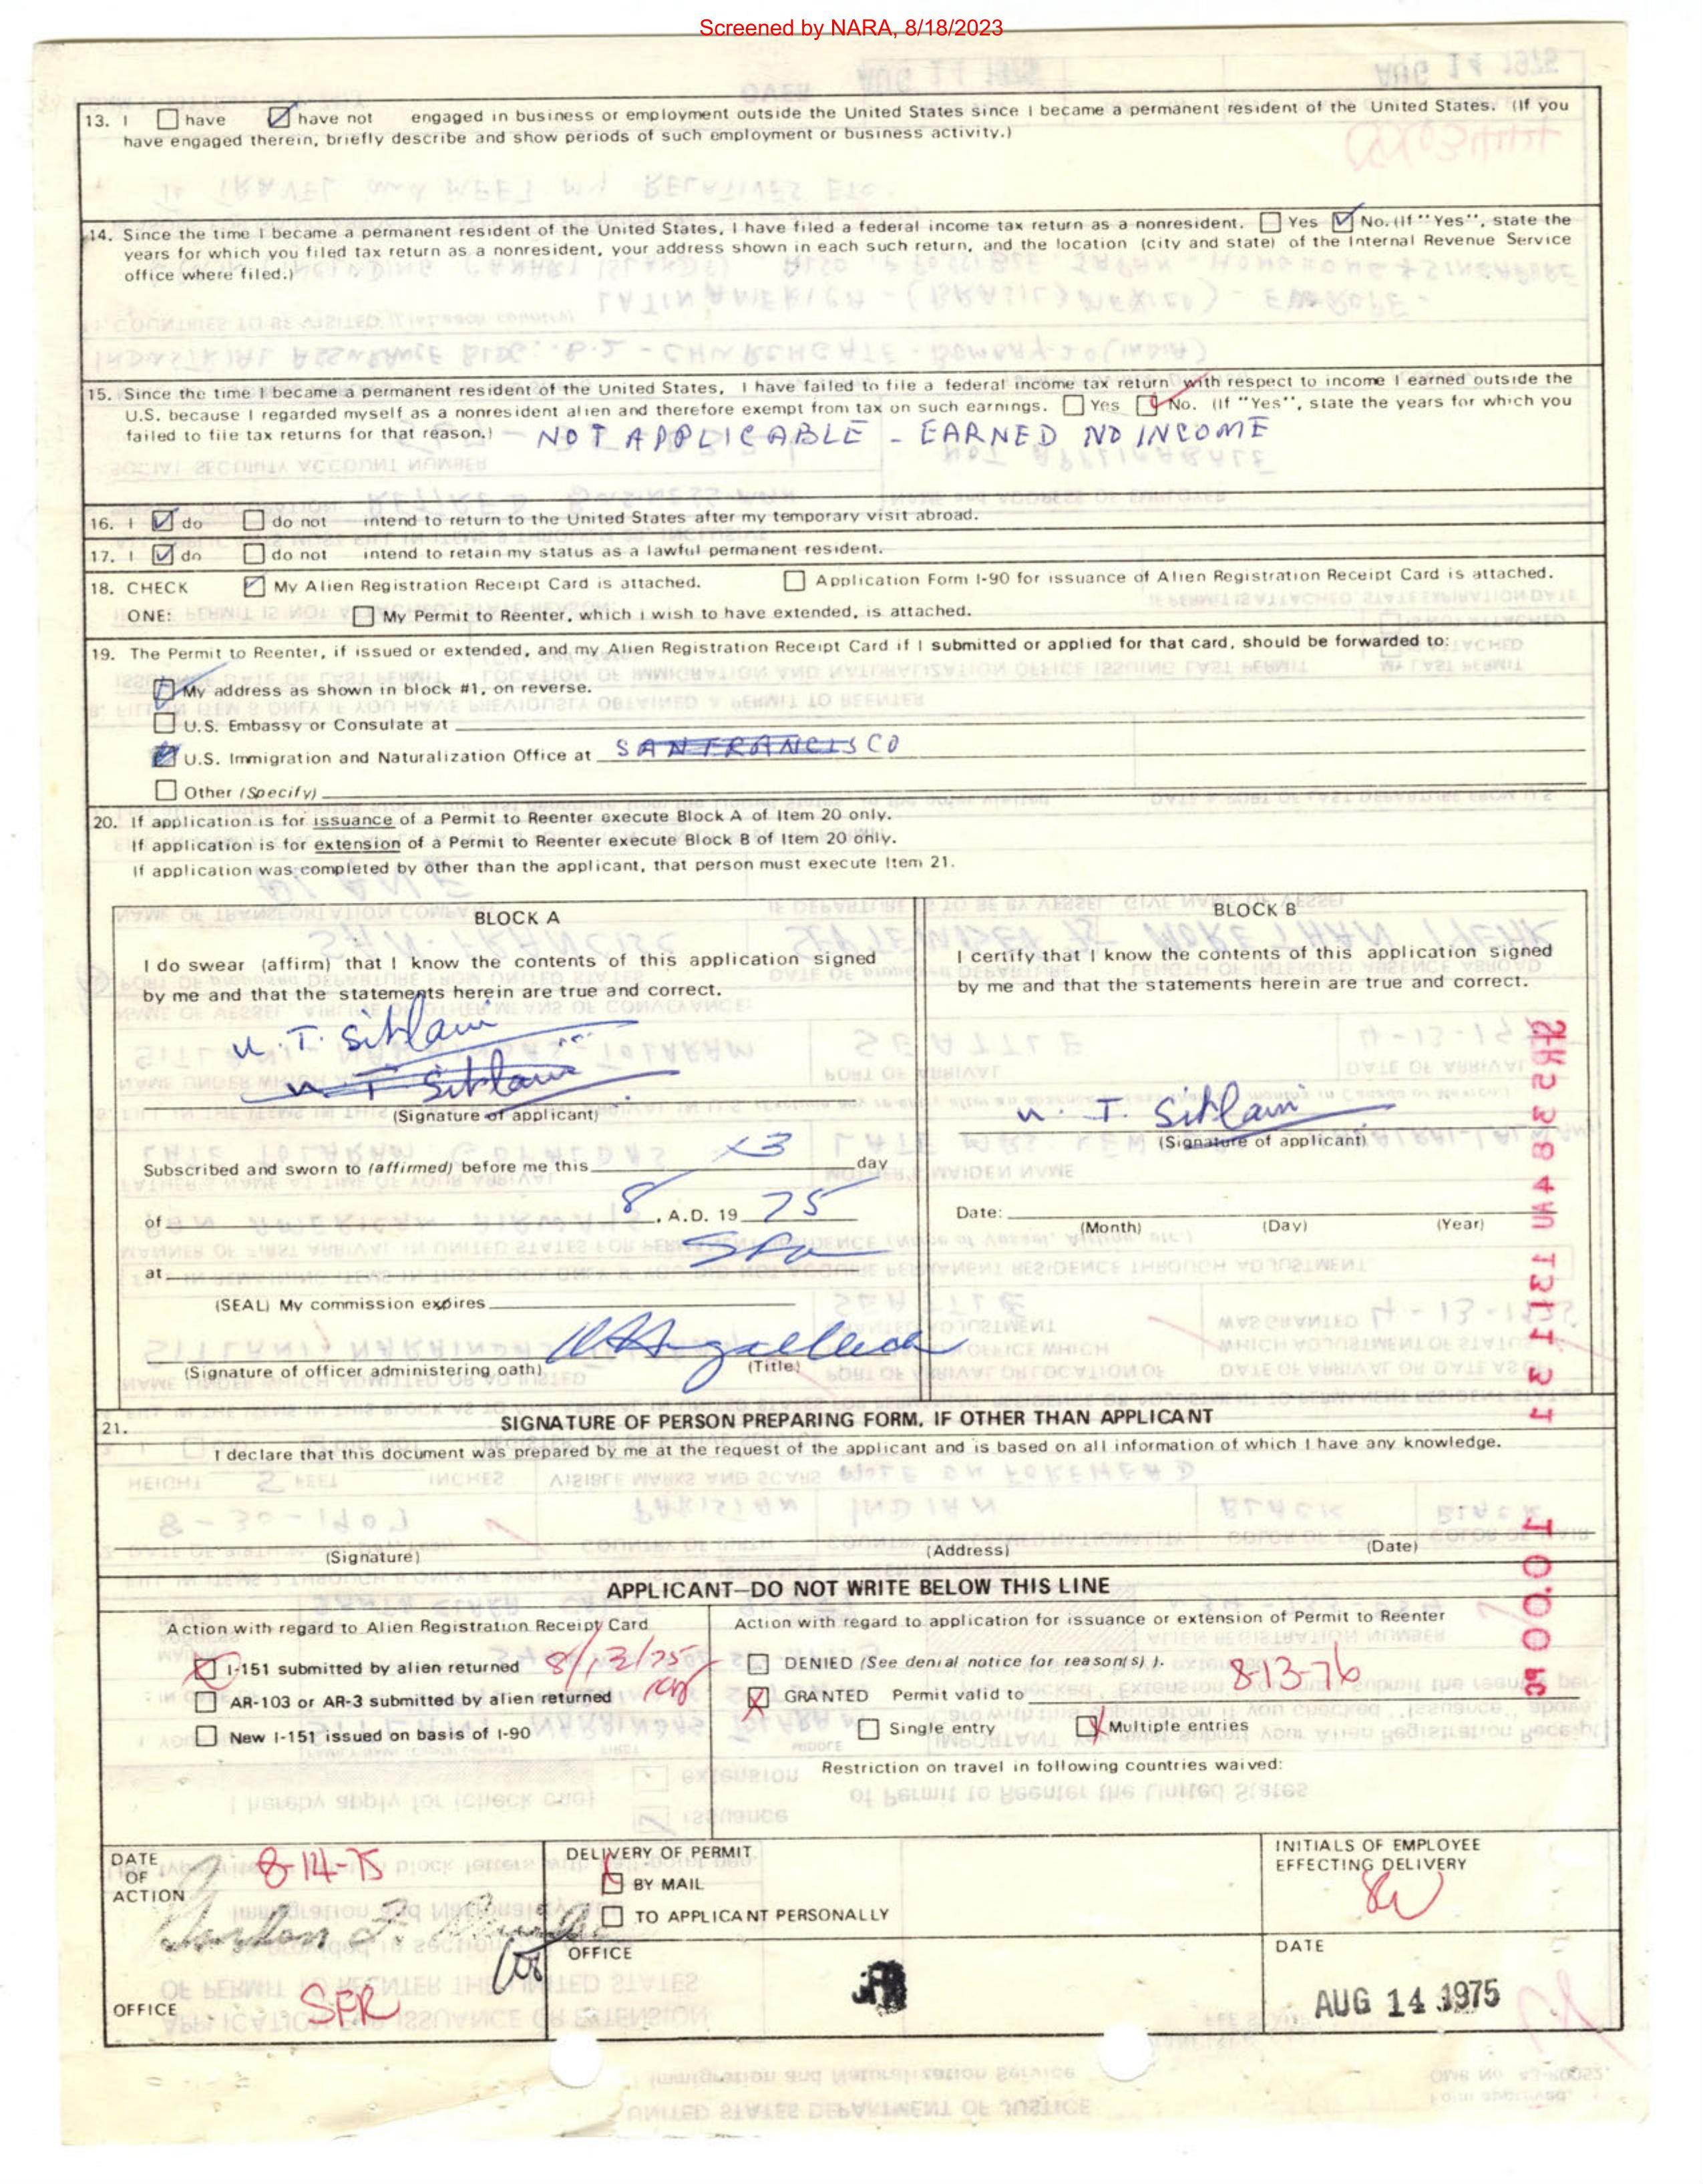 Screened by NARA, 8/18/2023
13. I have have not engaged in business or employment outside the United States since I became a permanent resident of the United States. (If you
have engaged therein, briefly describe and show periods of such employment or business activity.)
14. Since the time I became a permanent resident of the United States, I have filed a federal income tax return as a nonresident. Yes No. (If "Yes", state the
years for which you filed tax return as a nonresident, your address shown in each such return, and the location (city and state) of the Internal Revenue Service
office where filed.)
15. Since the time I became a permanent resident of the United States, I have failed to file a federal income tax return with respect to income I earned outside the
U.S. because I regarded myself as a nonresident alien and therefore exempt from tax on such earnings. Yes No. (If "Yes", state the years for which you
failed to file tax returns for that reason.) - NOT APPLICABLE - EARNED NO INCOME
16. I do do not intend to return to the United States after my temporary visit abroad.
17. I do do not intend to retain my status as a lawful permanent resident.
18. CHECK My Alien Registration Receipt Card is attached. Application Form I-90 for issuance of Alien Registration Receipt Card is attached.
ONE: My Permit to Reenter, which I wish to have extended, is attached.
19. The Permit to Reenter, if issued or extended, and my Alien Registration Receipt Card if I submitted or applied for that card, should be forwarded to:
My address as shown in block #1, on reverse.
U.S. Embassy or Consulate at
U.S. Immigration and Naturalization Office at SAN FRANCISCO
Other (Specify)
20. If application is for issuance of a Permit to Reenter execute Block A of Item 20 only.
If application is for extension of a Permit to Reenter execute Block B of Item 20 only.
If application was completed by other than the applicant, that person must execute Item 21.
BLOCK A
I do swear (affirm) that I know the contents of this application signed
by me and that the statements herein are true and correct.
N. T. Sitlani
N T Sitlani
(Signature of applicant)
Subscribed and sworn to (affirmed) before me this day
of 8 , A.D. 19 75
at
(SEAL) My commission expires
(Signature of officer administering oath) (Title)
BLOCK B
I certify that I know the contents of this application signed
by me and that the statements herein are true and correct.
N. T. Sitlani
(Signature of applicant)
Date:
(Month) (Day) (Year)
21. SIGNATURE OF PERSON PREPARING FORM, IF OTHER THAN APPLICANT
I declare that this document was prepared by me at the request of the applicant and is based on all information of which I have any knowledge.
(Signature) (Address) (Date)
APPLICANT—DO NOT WRITE BELOW THIS LINE
Action with regard to Alien Registration Receipt Card
I-151 submitted by alien returned 8/13/75
AR-103 or AR-3 submitted by alien returned
New I-151 issued on basis of I-90
Action with regard to application for issuance or extension of Permit to Reenter
DENIED (See denial notice for reason(s) ).
GRANTED Permit valid to 8-13-76
Single entry Multiple entries
Restriction on travel in following countries waived:
DATE
OF
ACTION
8-14-75
OFFICE SFR
DELIVERY OF PERMIT
BY MAIL
TO APPLICANT PERSONALLY
OFFICE
INITIALS OF EMPLOYEE
EFFECTING DELIVERY
DATE
AUG 14 1975